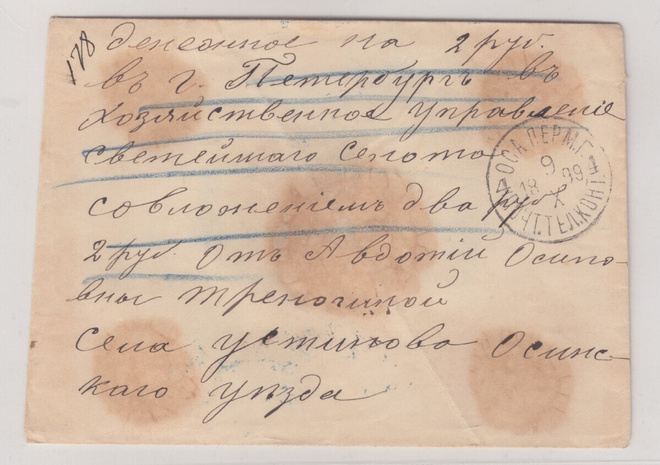 178
денежное на 2 руб.
въ г. Петербургъ въ
хозяйственное управление
светейшаго Сенота
совложениемъ два руб
2 руб. Отъ Авдотии Осипо-
вны Треногиной
Села устиново Осинс-
каго уезда
ОСА ПЕРМ. Г.
9
18 99
X
ПОЧТ. ТЕЛ. КОНТ.